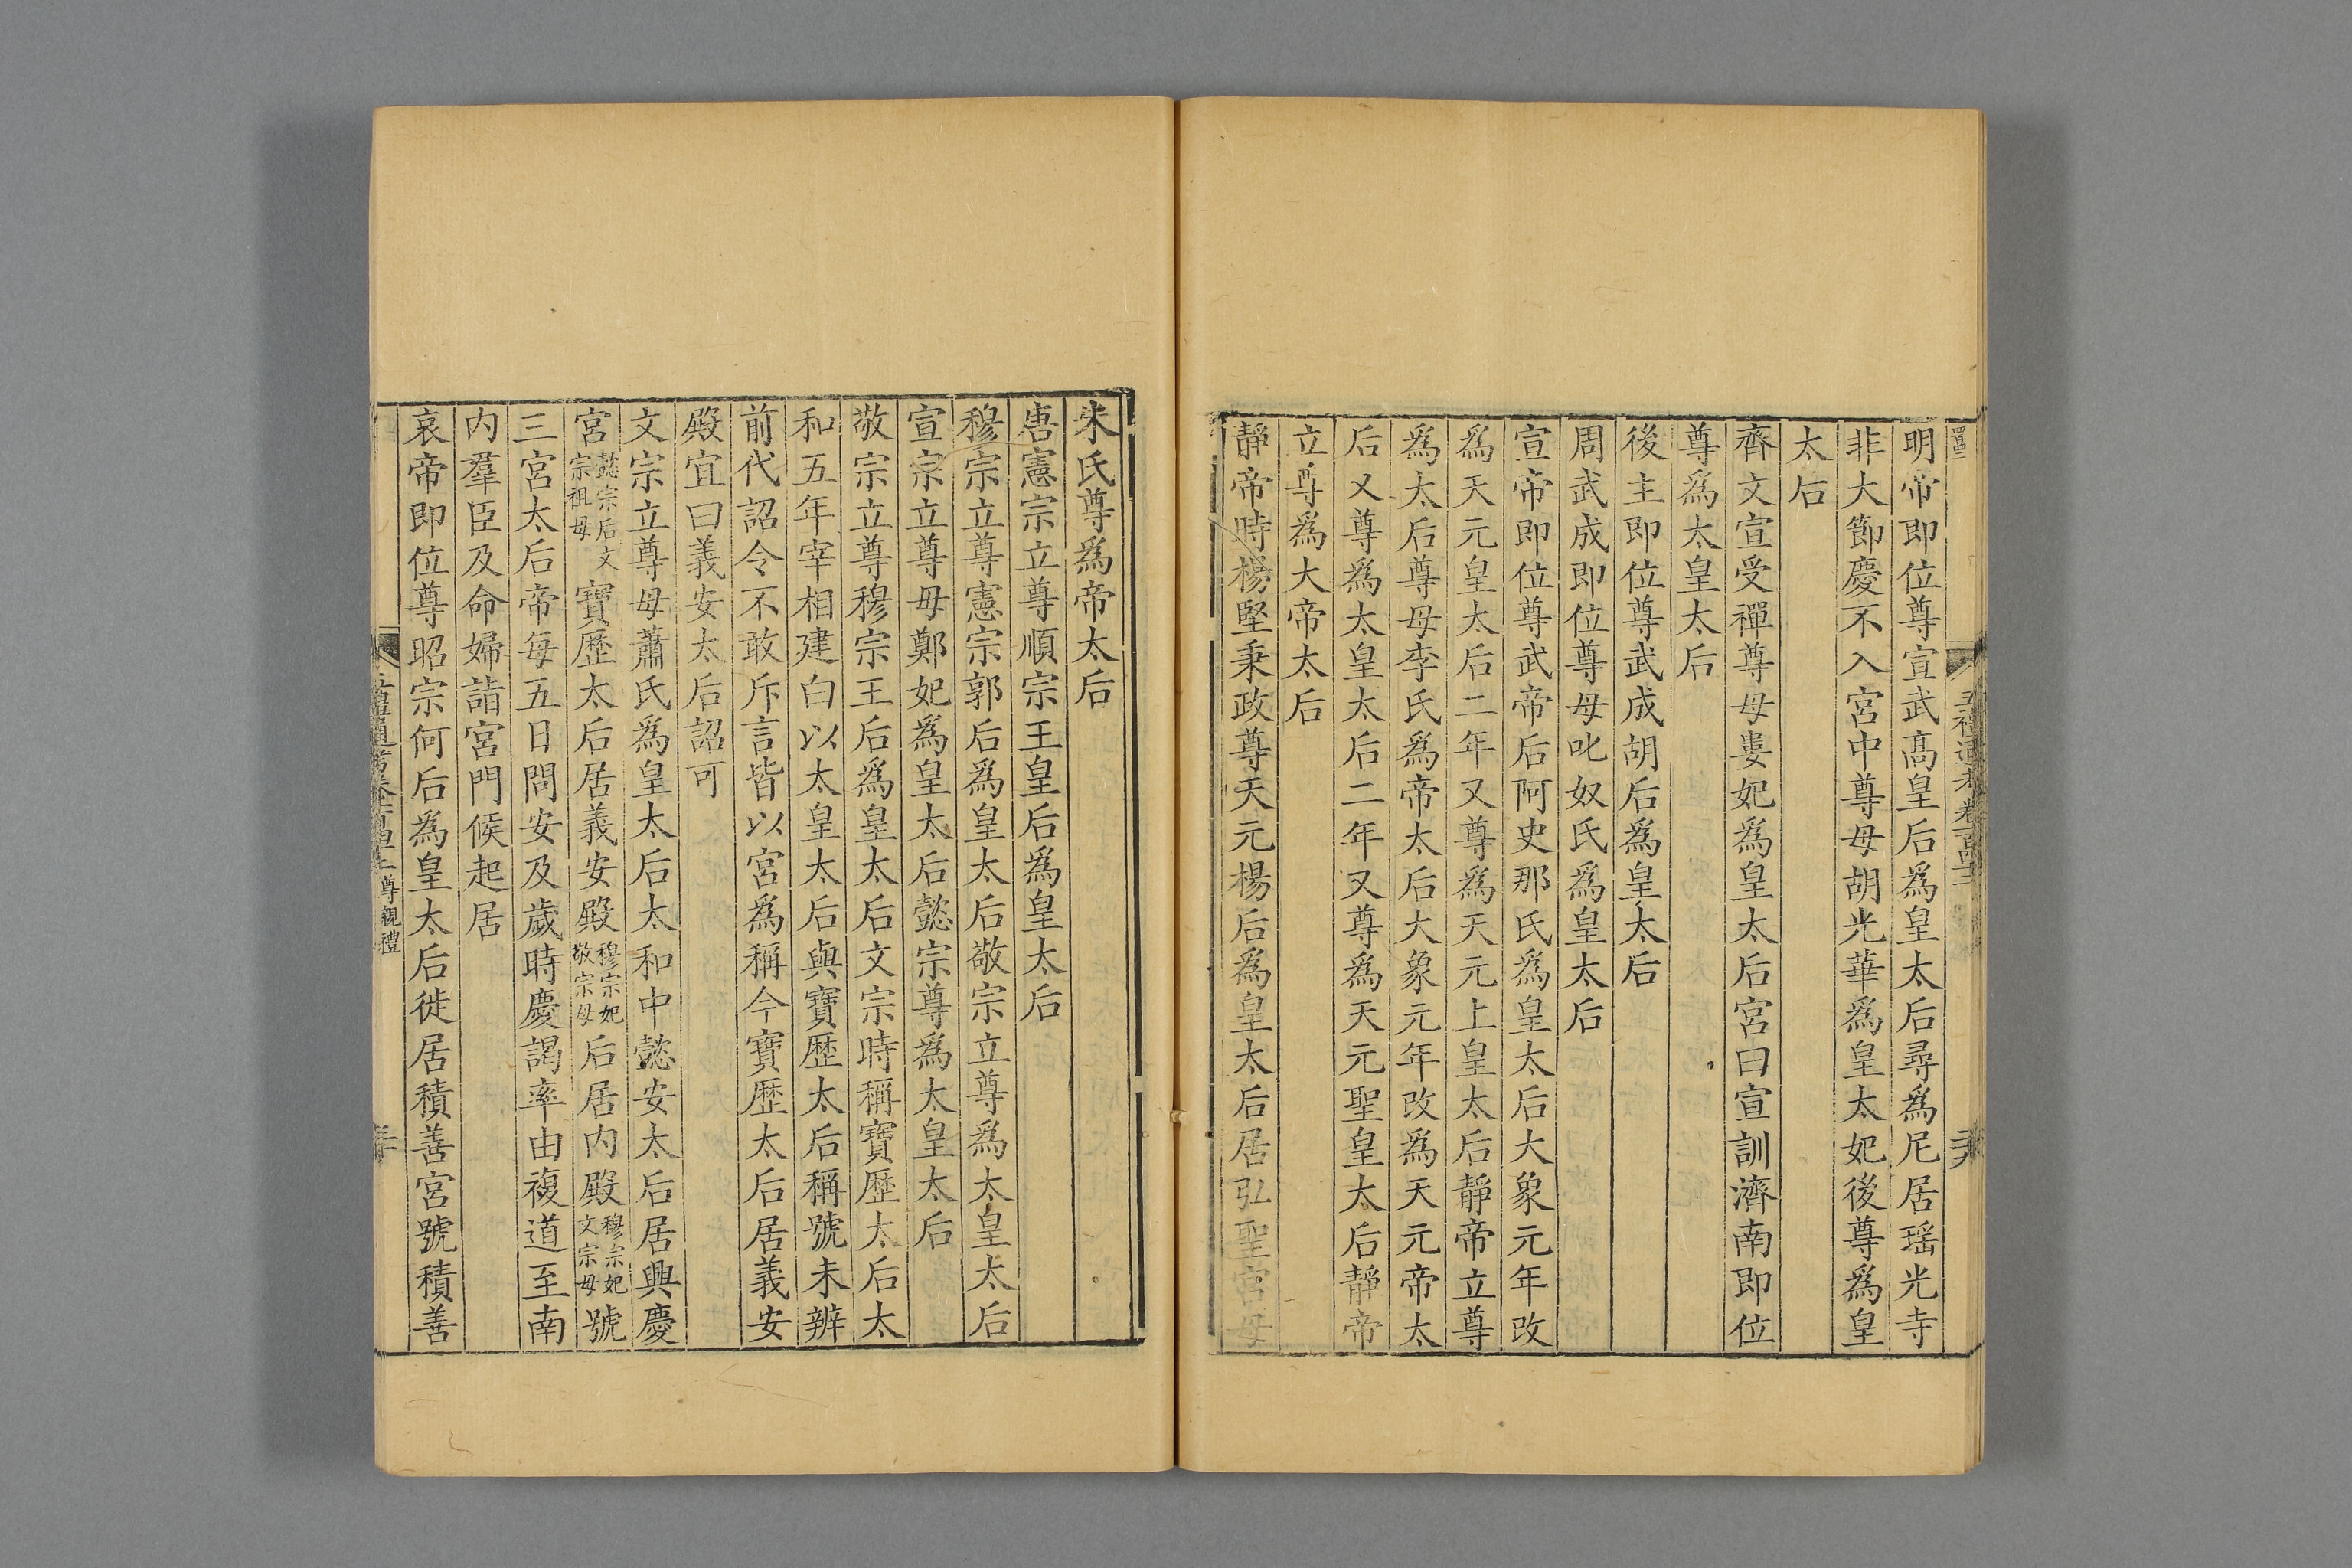 明帝即位尊宣武高皇后爲皇太后尋爲尼居瑶光寺
非大節慶不入宮中尊母胡光華爲皇太妃後尊爲皇
太后
齊文宣受禪尊母婁妃爲皇太后宮曰宣訓濟南即位
尊爲太皇太后
後主即位尊武成胡后爲皇太后
周武成即位尊母叱奴氏爲皇太后
宣帝即位尊武帝后阿史那氏爲皇太后大象元年改
爲天元皇太后二年又尊爲天元上皇太后靜帝立尊
爲太后尊母李氏爲帝太后大象元年改爲天元帝太
后又尊爲太皇太后二年又尊爲天元聖皇太后靜帝
立尊爲大帝太后
靜帝時楊堅秉政尊天元楊后爲皇太后居弘聖宮母
朱氏尊爲帝太后
唐憲宗立尊順宗王皇后爲皇太后
穆宗立尊憲宗郭后爲皇太后敬宗立尊爲太皇太后
宣宗立尊母鄭妃爲皇太后懿宗尊爲太皇太后
敬宗立尊穆宗王后爲皇太后文宗時稱寶歷太后太
和五年宰相建白以太皇太后與寶歷太后稱號未辨
前代詔令不敢斥言皆以宮爲稱今寶歷太后居義安
殿宜曰義安太后詔可
文宗立尊母蕭氏爲皇太后太和中懿安太后居興慶
宮懿宗后文宗祖母寶歷太后居義安殿穆宗妃敬宗母后居内殿穆宗妃文宗母號
三宮太后帝每五日問安及歲時慶謁率由複道至南
内羣臣及命婦詣宮門候起居
哀帝即位尊昭宗何后爲皇太后徙居積善宮號積善
尊親禮